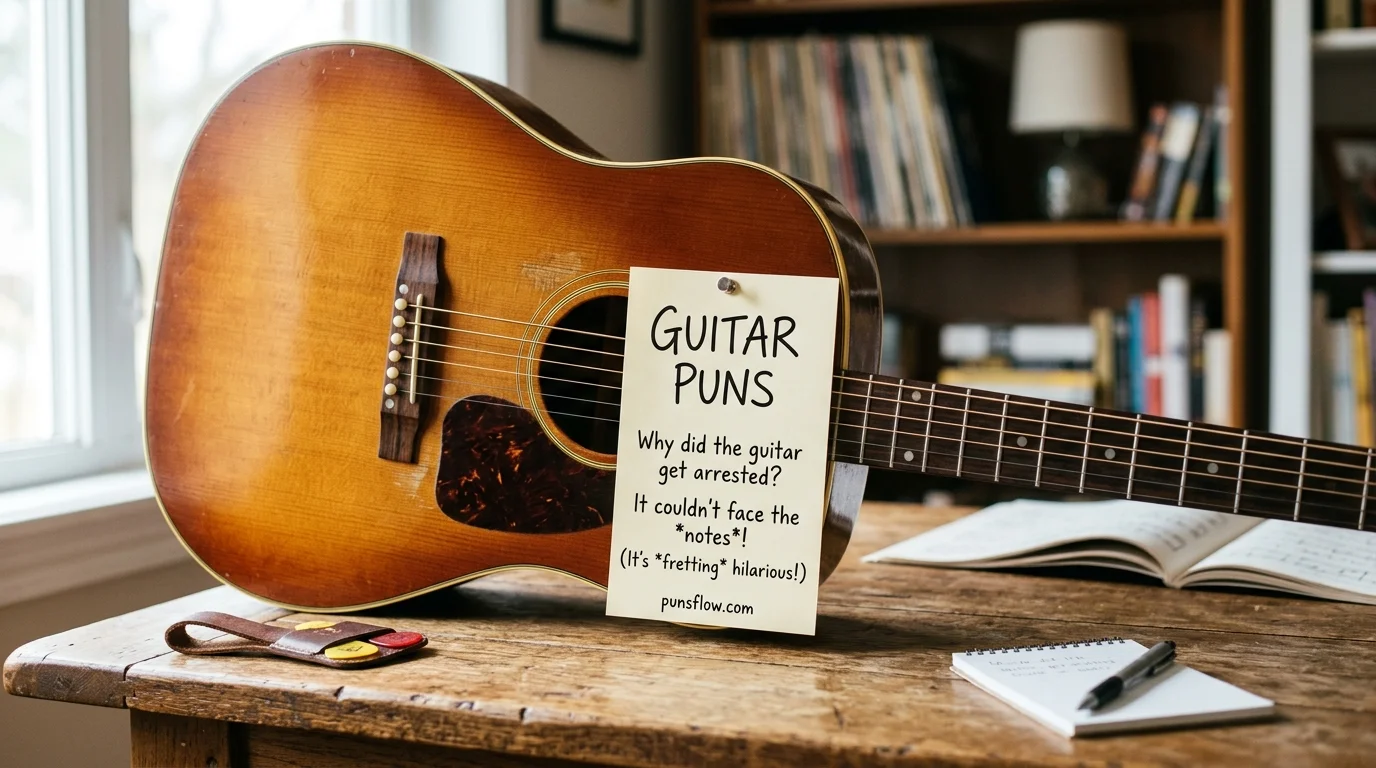 GUITAR
PUNS
Why did the guitar
get arrested?
It couldn't face the
*notes*!
(It's *fretting* hilarious!)
punsflow.com